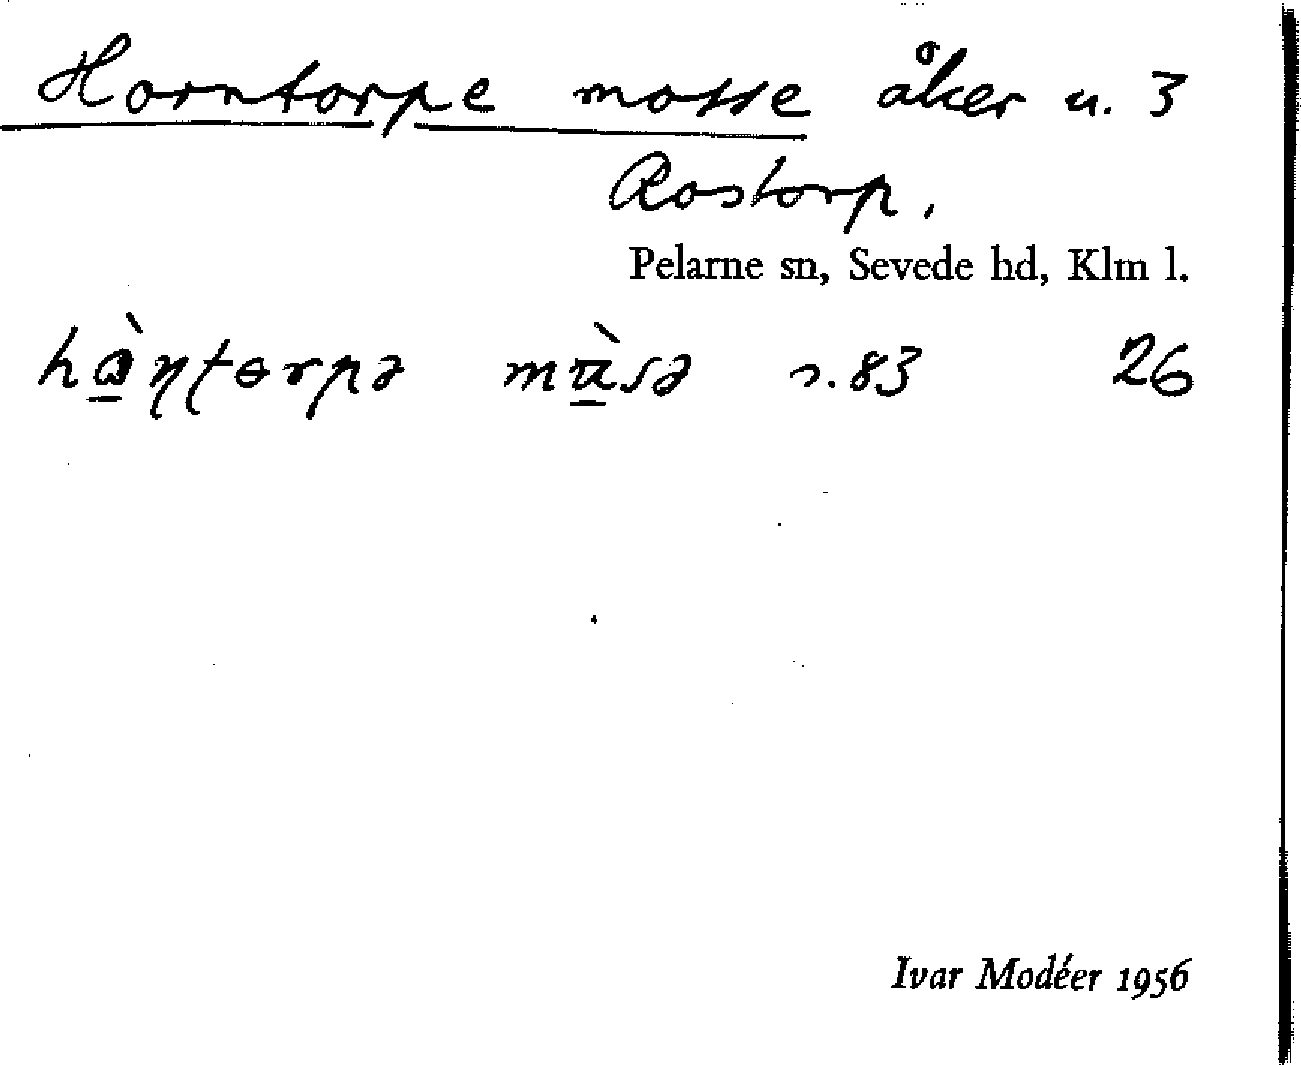 Horntorpe mosse åker u. 3
Rostorp.
Pelarne sn, Sevede hd, Klm l.
s. 83 26
Ivar Modéer 1956